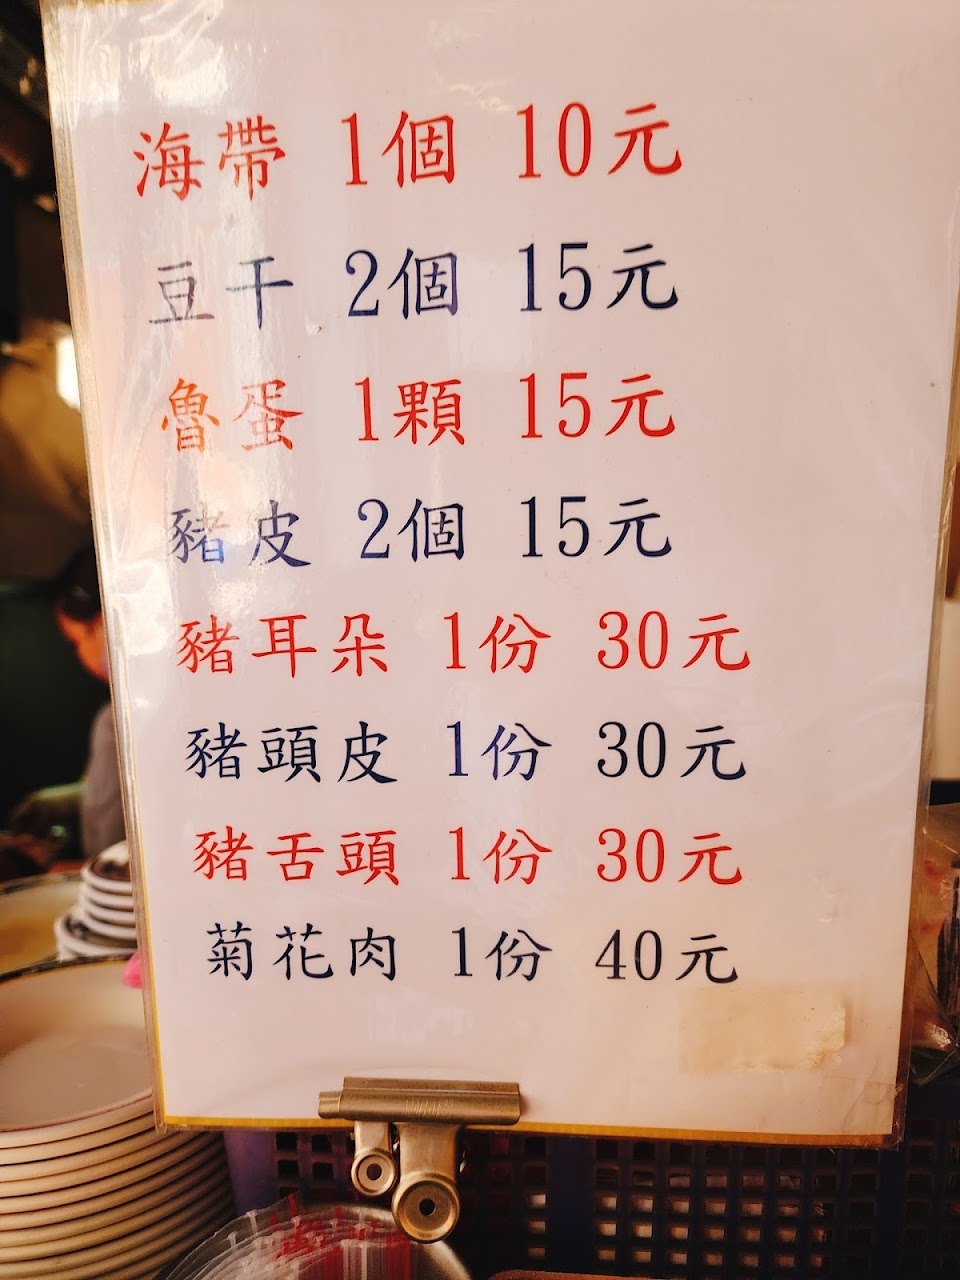 海帶 1個 10元
豆干 2個 15元
魯蛋 1顆 15元
豬皮 2個 15元
豬耳朵 1份 30元
豬頭皮 1份 30元
豬舌頭 1份 30元
菊花肉 1份 40元